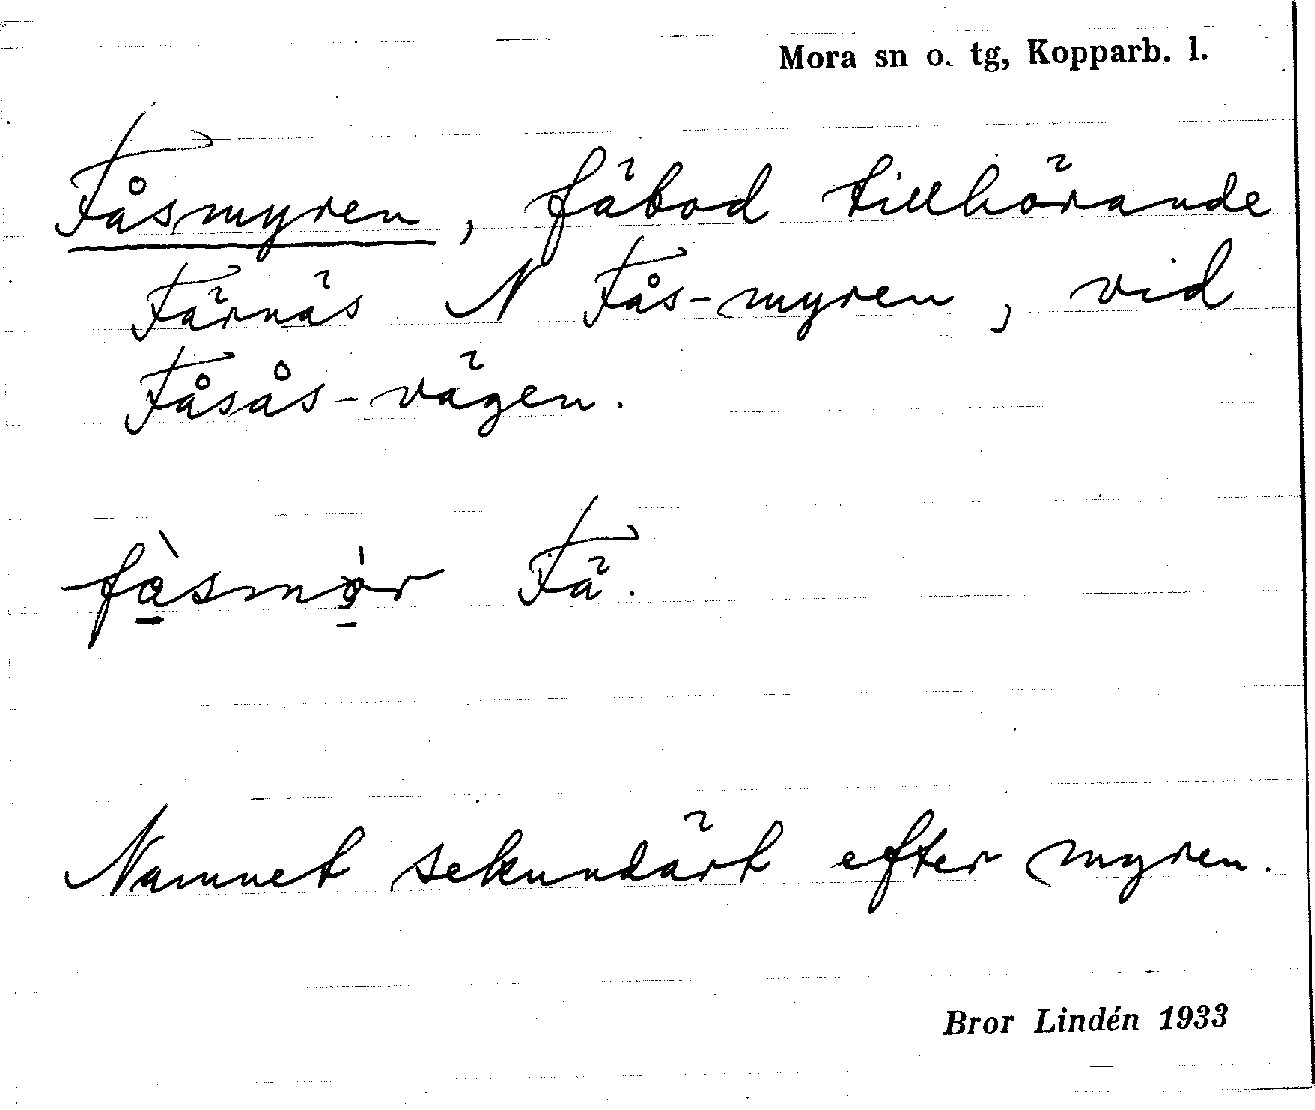 Mora sn o. tg, Kopparb. l.
Fåsmyren, fäbod tillhörande
Färnäs N Fås-myren, vid
Fåsås-vägen.
Fä.
Namnet sekundärt efter myren.
Bror Lindén 1933